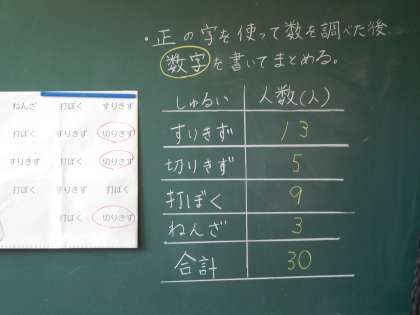 ・正の字を使って数を調べた後、
数字を書いてまとめる。
しゅるい 人数(人)
すりきず 13
切りきず 5
打ぼく 9
ねんざ 3
合計 30
ねんざ 打ぼく すりきず
打ぼく すりきず 切りきず
すりきず 打ぼく 切りきず
打ぼく すりきず 打ぼく
打ぼく 切りきず